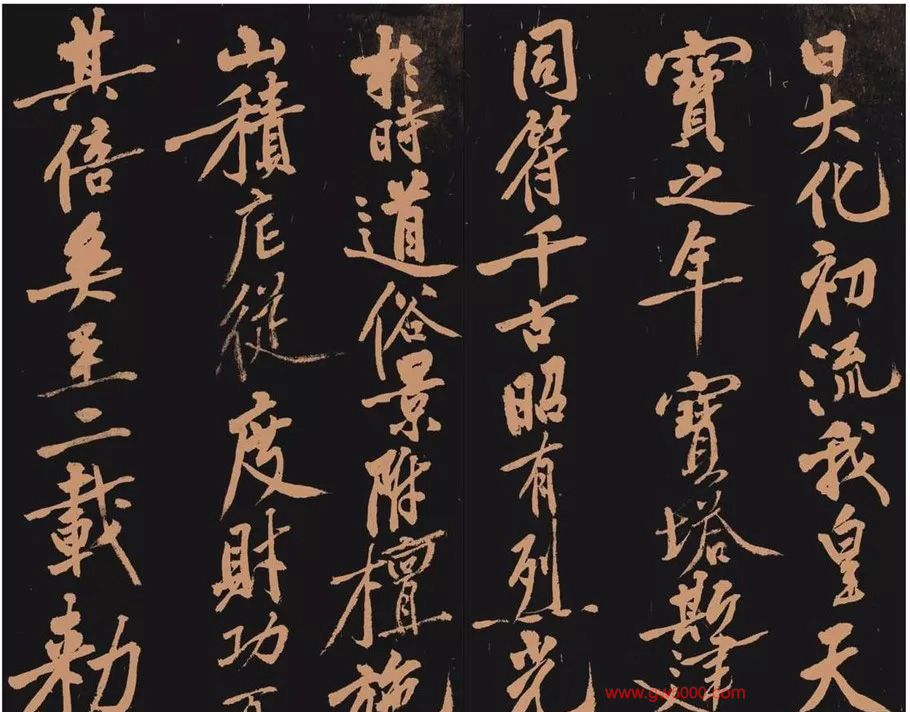 日大化初流我皇天
寶之年寶塔斯建
同符千古昭有烈光
於時道俗景附檀施
山積庀從度財功百
其倍矣至二載勑
www.gw5000.com